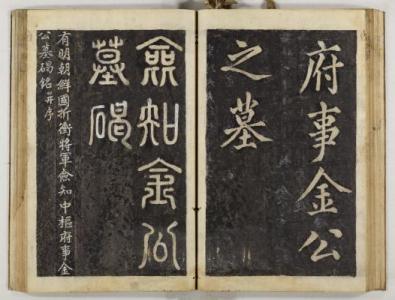 府事金公
之墓
僉知金公
墓碣
有明朝鮮國折衝將軍僉知中樞府事金
公墓碣銘并序